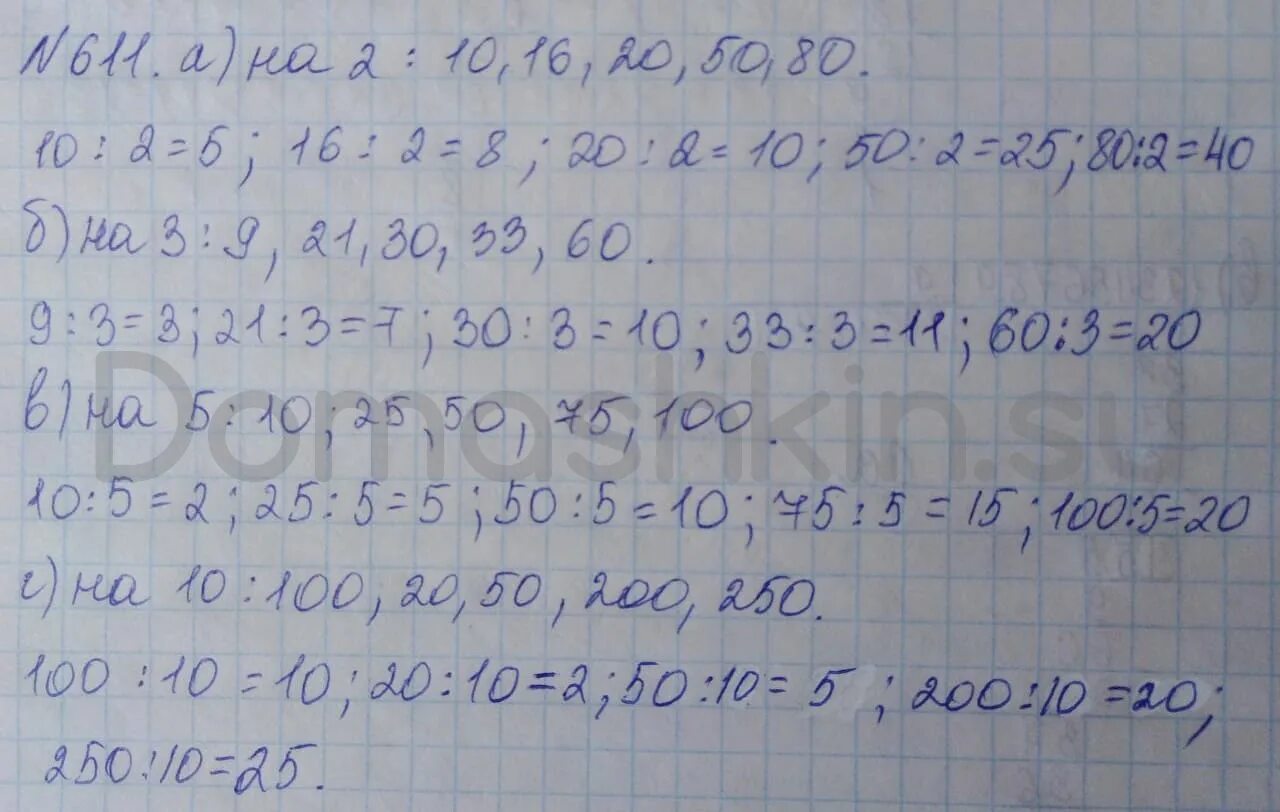 №611. а) на 2 : 10, 16, 20, 50, 80.
10 : 2 = 5; 16 : 2 = 8; 20 : 2 = 10; 50 : 2 = 25; 80:2 = 40
б) на 3 : 9, 21, 30, 33, 60.
9 : 3 = 3; 21 : 3 = 7; 30 : 3 = 10; 33 : 3 = 11; 60:3 = 20
Domashkin.su
в) на 5 : 10; 25, 50, 75, 100.
10 : 5 = 2; 25 : 5 = 5; 50 : 5 = 10; 75 : 5 = 15; 100:5 = 20
г) на 10 : 100, 20, 50, 200, 250.
100 : 10 = 10; 20 : 10 = 2; 50 : 10 = 5; 200 : 10 = 20;
250 : 10 = 25.